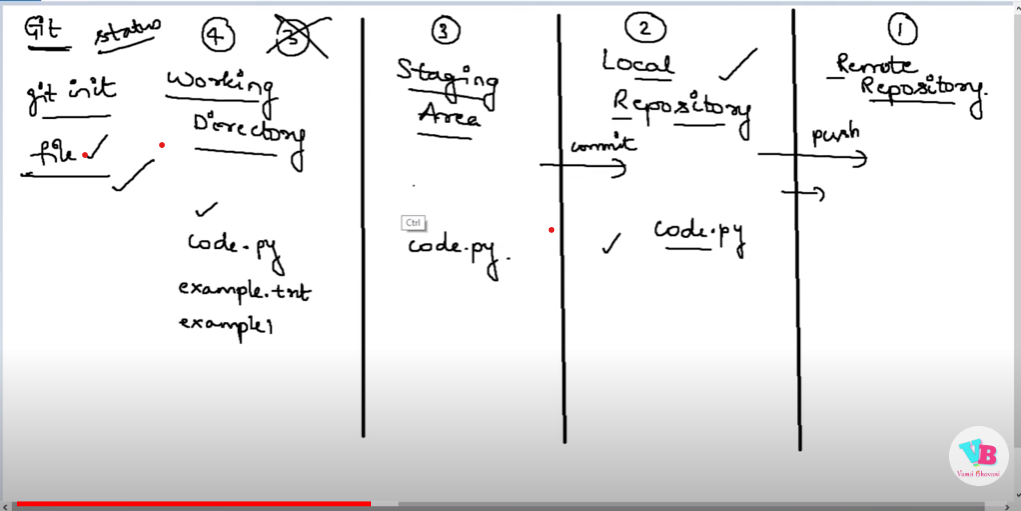 Git status
git init
file.
4
3
Working
Directory
code.py
example.txt
example1
3
Staging
Area
Ctrl
code.py.
2
Local
Repository
commit
code.py
1
Remote
Repository.
push
VB
Vamsi Bhavani